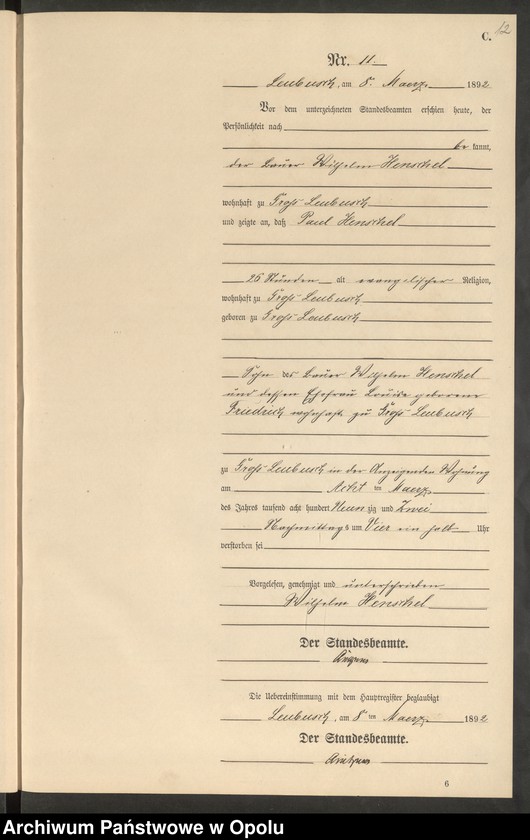 12
C.
Nr. 11.
Leubusch, am 8. Maerz 1892
Vor dem unterzeichneten Standesbeamten erschien heute, der
Persönlichkeit nach
be kannt,
der Bauer Wilhelm Henschel
wohnhaft zu Groß Leubusch
und zeigte an, daß Paul Henschel
25 Stunden alt evangelischer Religion,
wohnhaft zu Groß Leubusch
geboren zu Groß Leubusch
Sohn des Bauer Wilhelm Henschel
und dessen Ehefrau Louise geborene
Friedrich wohnhaft zu Groß Leubusch
zu Groß Leubusch in der Anzeigenden Wohnung
am Acht ten Maerz
des Jahres tausend acht hundert Neun zig und Zwei
Nachmittags um Vier ein halb Uhr
verstorben sei
Vorgelesen, genehmigt und unterschrieben
Wilhelm Henschel
Der Standesbeamte.
Die Uebereinstimmung mit dem Hauptregister beglaubigt
Leubusch, am 8 ten Maerz 1892
Der Standesbeamte.
6
Archiwum Państwowe w Opolu